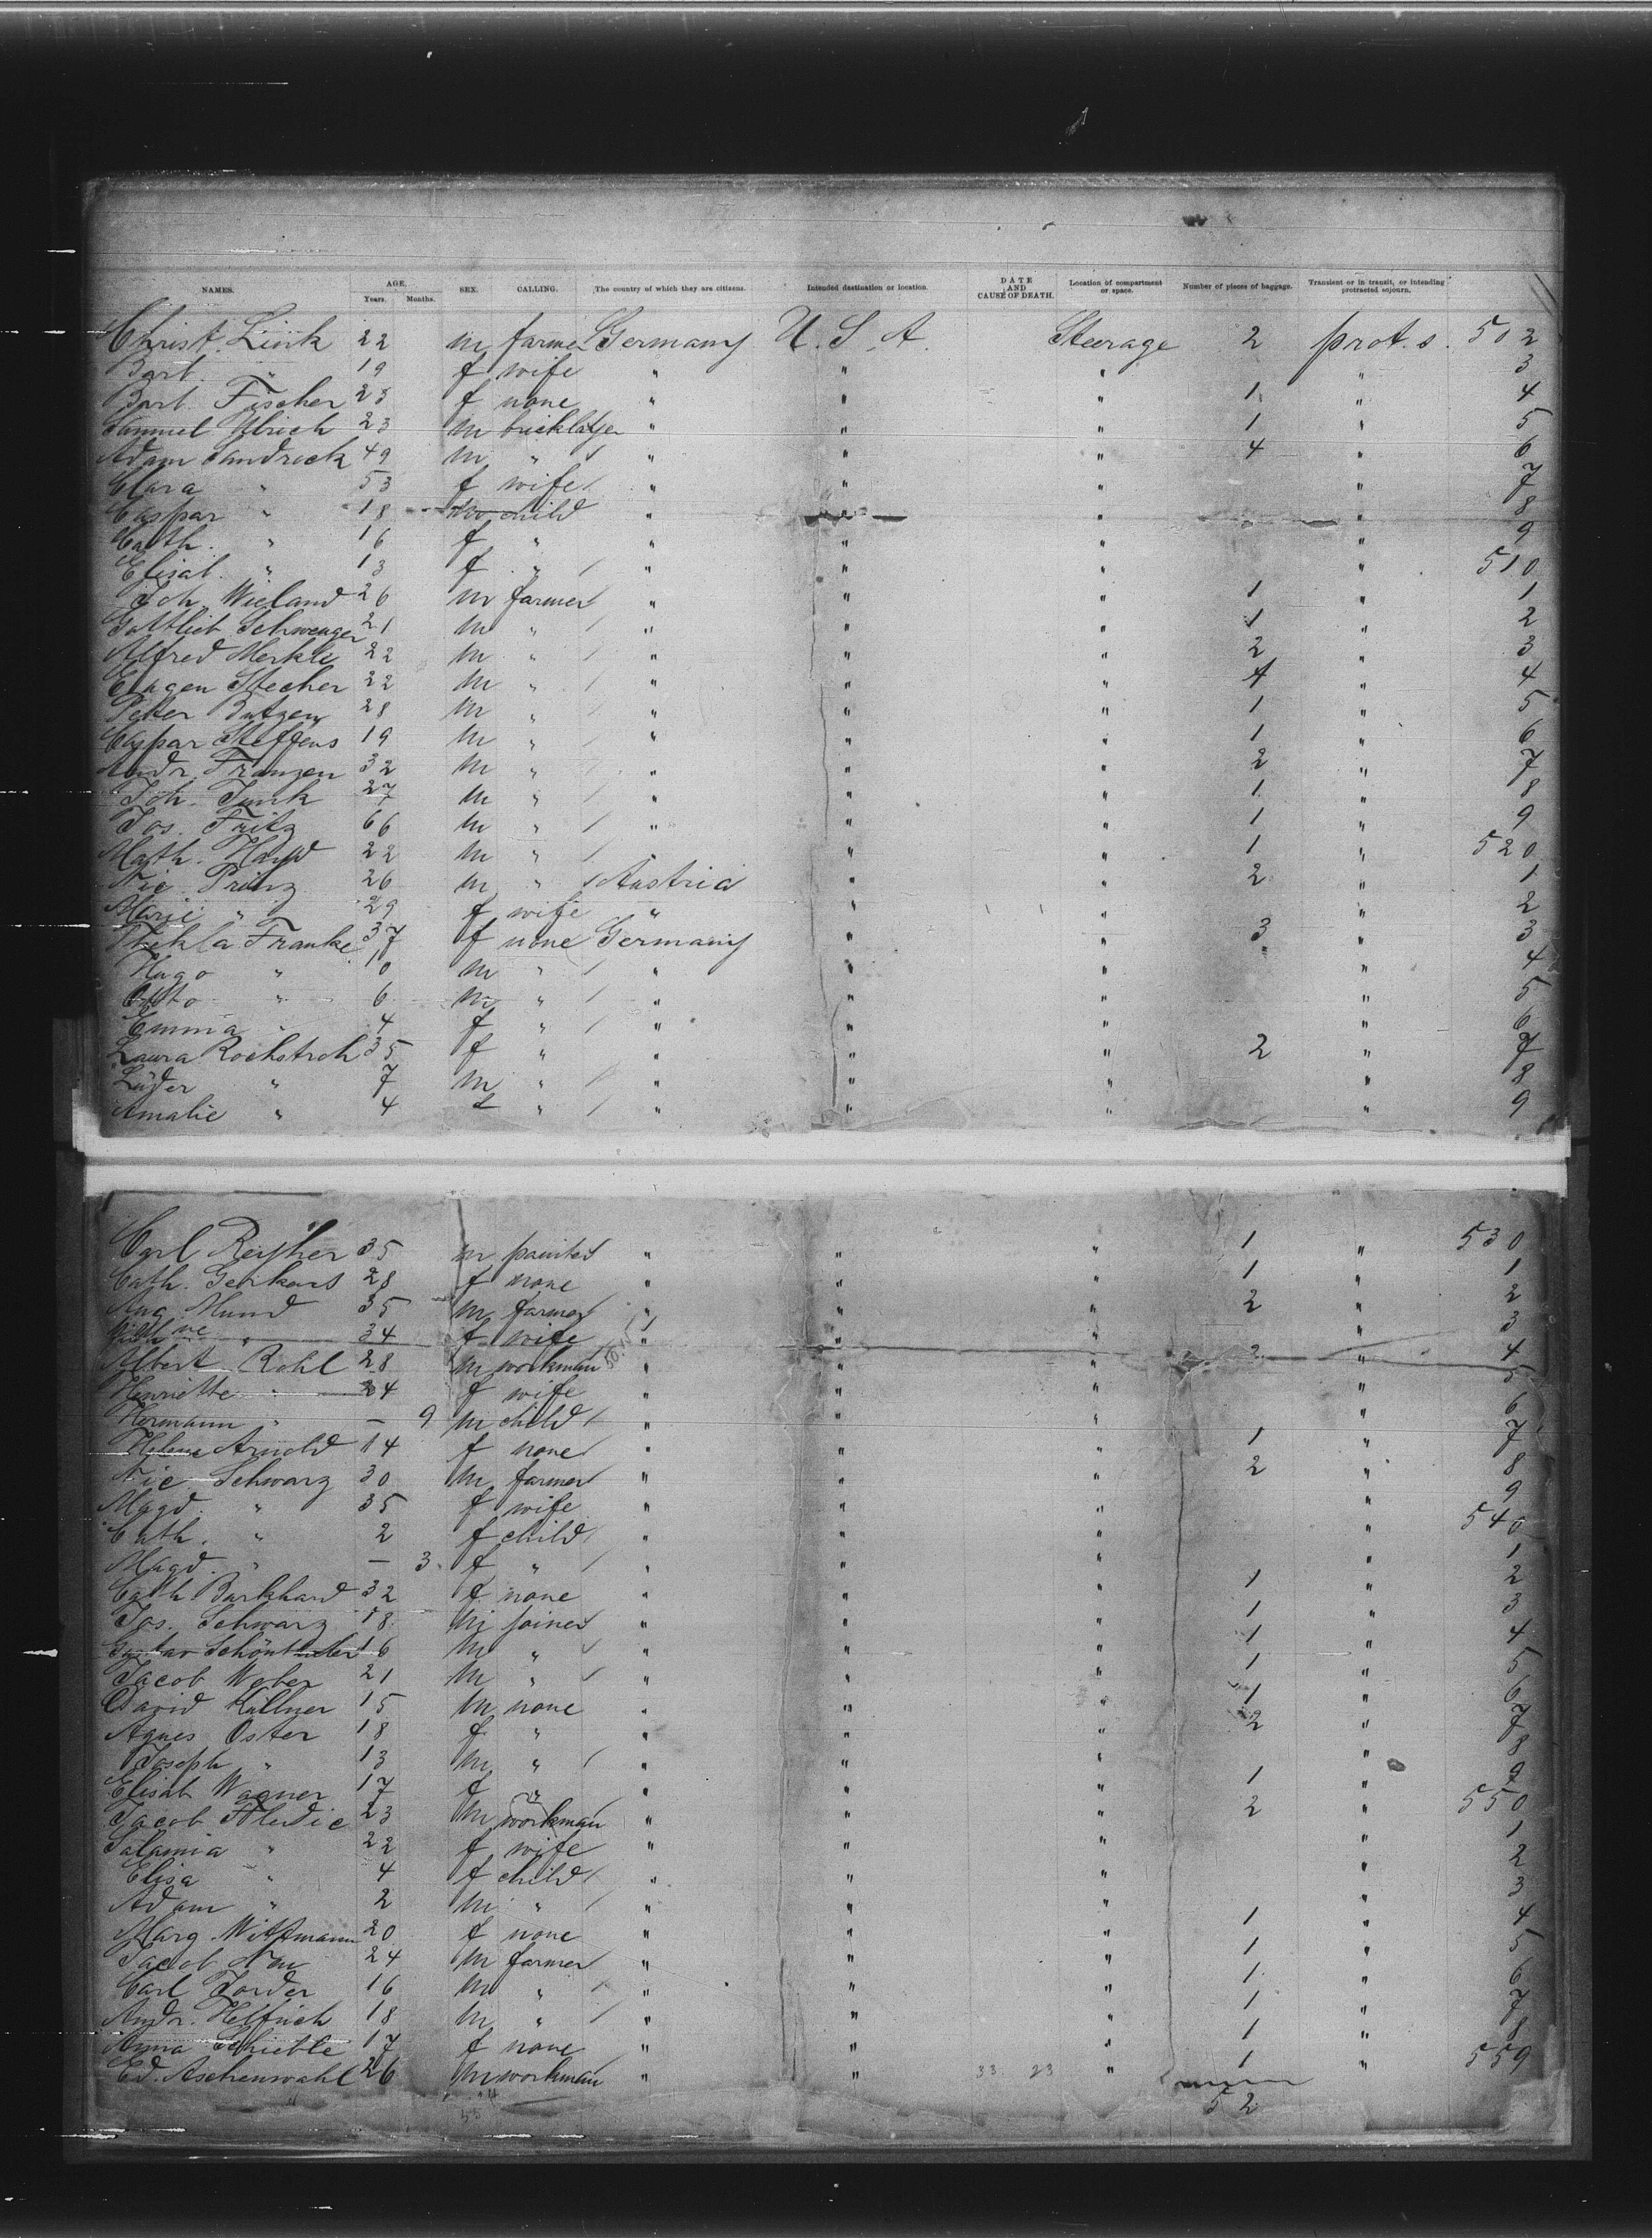 NAMES. AGE. Years. Months. SEX. CALLING. The country of which they are citizens. Intended destination or location. DATE AND CAUSE OF DEATH. Location of compartment or space. Number of pieces of baggage. Transient or in transit, or intending protracted sojourn.
Christ. Link 22 m farmer Germany U. S. A. Steerage 2 prot. s. 502
Barb. " 19 f wife " " " " 3
Barb. Fischer 23 f none " " " 1 " 4
Samuel Ulrich 23 m bricklayer " " " 1 " 5
Adam Landreck 49 m " " " " 4 " 6
Clara " 53 f wife " " " " 7
Caspar " 18 m child " " " " 8
Cath. " 16 f " " " " " 9
Elisab. " 13 f " " " " " 510
Joh. Wieland 26 m farmer " " " 1 " 1
Gottlieb Schwenger 21 m " " " " 1 " 2
Alfred Merkle 22 m " " " " 2 " 3
Eugen Stecher 22 m " " " " 1 " 4
Peter Butzen 28 m " " " " 1 " 5
Caspar Steffens 19 m " " " " 1 " 6
Andr. Franzen 32 m " " " " 2 " 7
Joh. Junk 27 m " " " " 1 " 8
Jos. Fritz 66 m " " " " 1 " 9
Math. 22 m " " " " 1 " 520
Nic. Prinz 26 m " Austria " " 2 " 1
Marie " 29 f wife " " " " 2
Thekla Franke 37 f none Germany " " 3 " 3
Hugo " 10 m " " " " " 4
Otto " 6 m " " " " " 5
Emma " 4 f " " " " " 6
Laura Rockstroh 35 f " " " " 2 " 7
Lüder " 7 m " " " " " 8
Amalie " 4 f " " " " " 9
Carl Reyher 35 m painter " " " 1 " 530
Cath. Gerkens 28 f none " " " 1 " 1
Aug. Mund 35 m farmer " " " 2 " 2
Wilh ne " 34 f wife " " " " 3
Albert Rohl 28 m workman " " " 2 " 4
Henriette " 24 f wife " " " " 5
Hermann " — 9 m child " " " " 6
Helene Arnold 14 f none " " " 1 " 7
Nic Schwarz 30 m farmer " " " 2 " 8
Magd. " 35 f wife " " " " 9
Cath. " 2 f child " " " " 540
Magd. " — 3 f " " " " " 1
Cath. Burkhard 32 f none " " " 1 " 2
Jos. Schwarz 18 m joiner " " " 1 " 3
Gustav 16 m " " " " 1 " 4
Jacob Weber 21 m " " " " 1 " 5
David Küllner 15 m none " " " 1 " 6
Agnes Oster 18 f " " " " 2 " 7
Joseph " 13 m " " " " " 8
Elisab Wagner 17 f " " " " 1 " 9
Jacob 23 m workman " " " 2 " 550
Salamia " 22 f wife " " " " 1
Elisa " 4 f child " " " " 2
Adam " 2 m " " " " " 3
Marg. Wittmann 20 f none " " " 1 " 4
Jacob 24 m farmer " " " 1 " 5
Carl Jorder 16 m " " " " 1 " 6
Andr. Helfrich 18 m " " " " 1 " 7
Anna Schieble 17 f none " " " 1 " 8
Ed. Aschenwahl 26 m workman " " 33 23 " 1 " 559
52